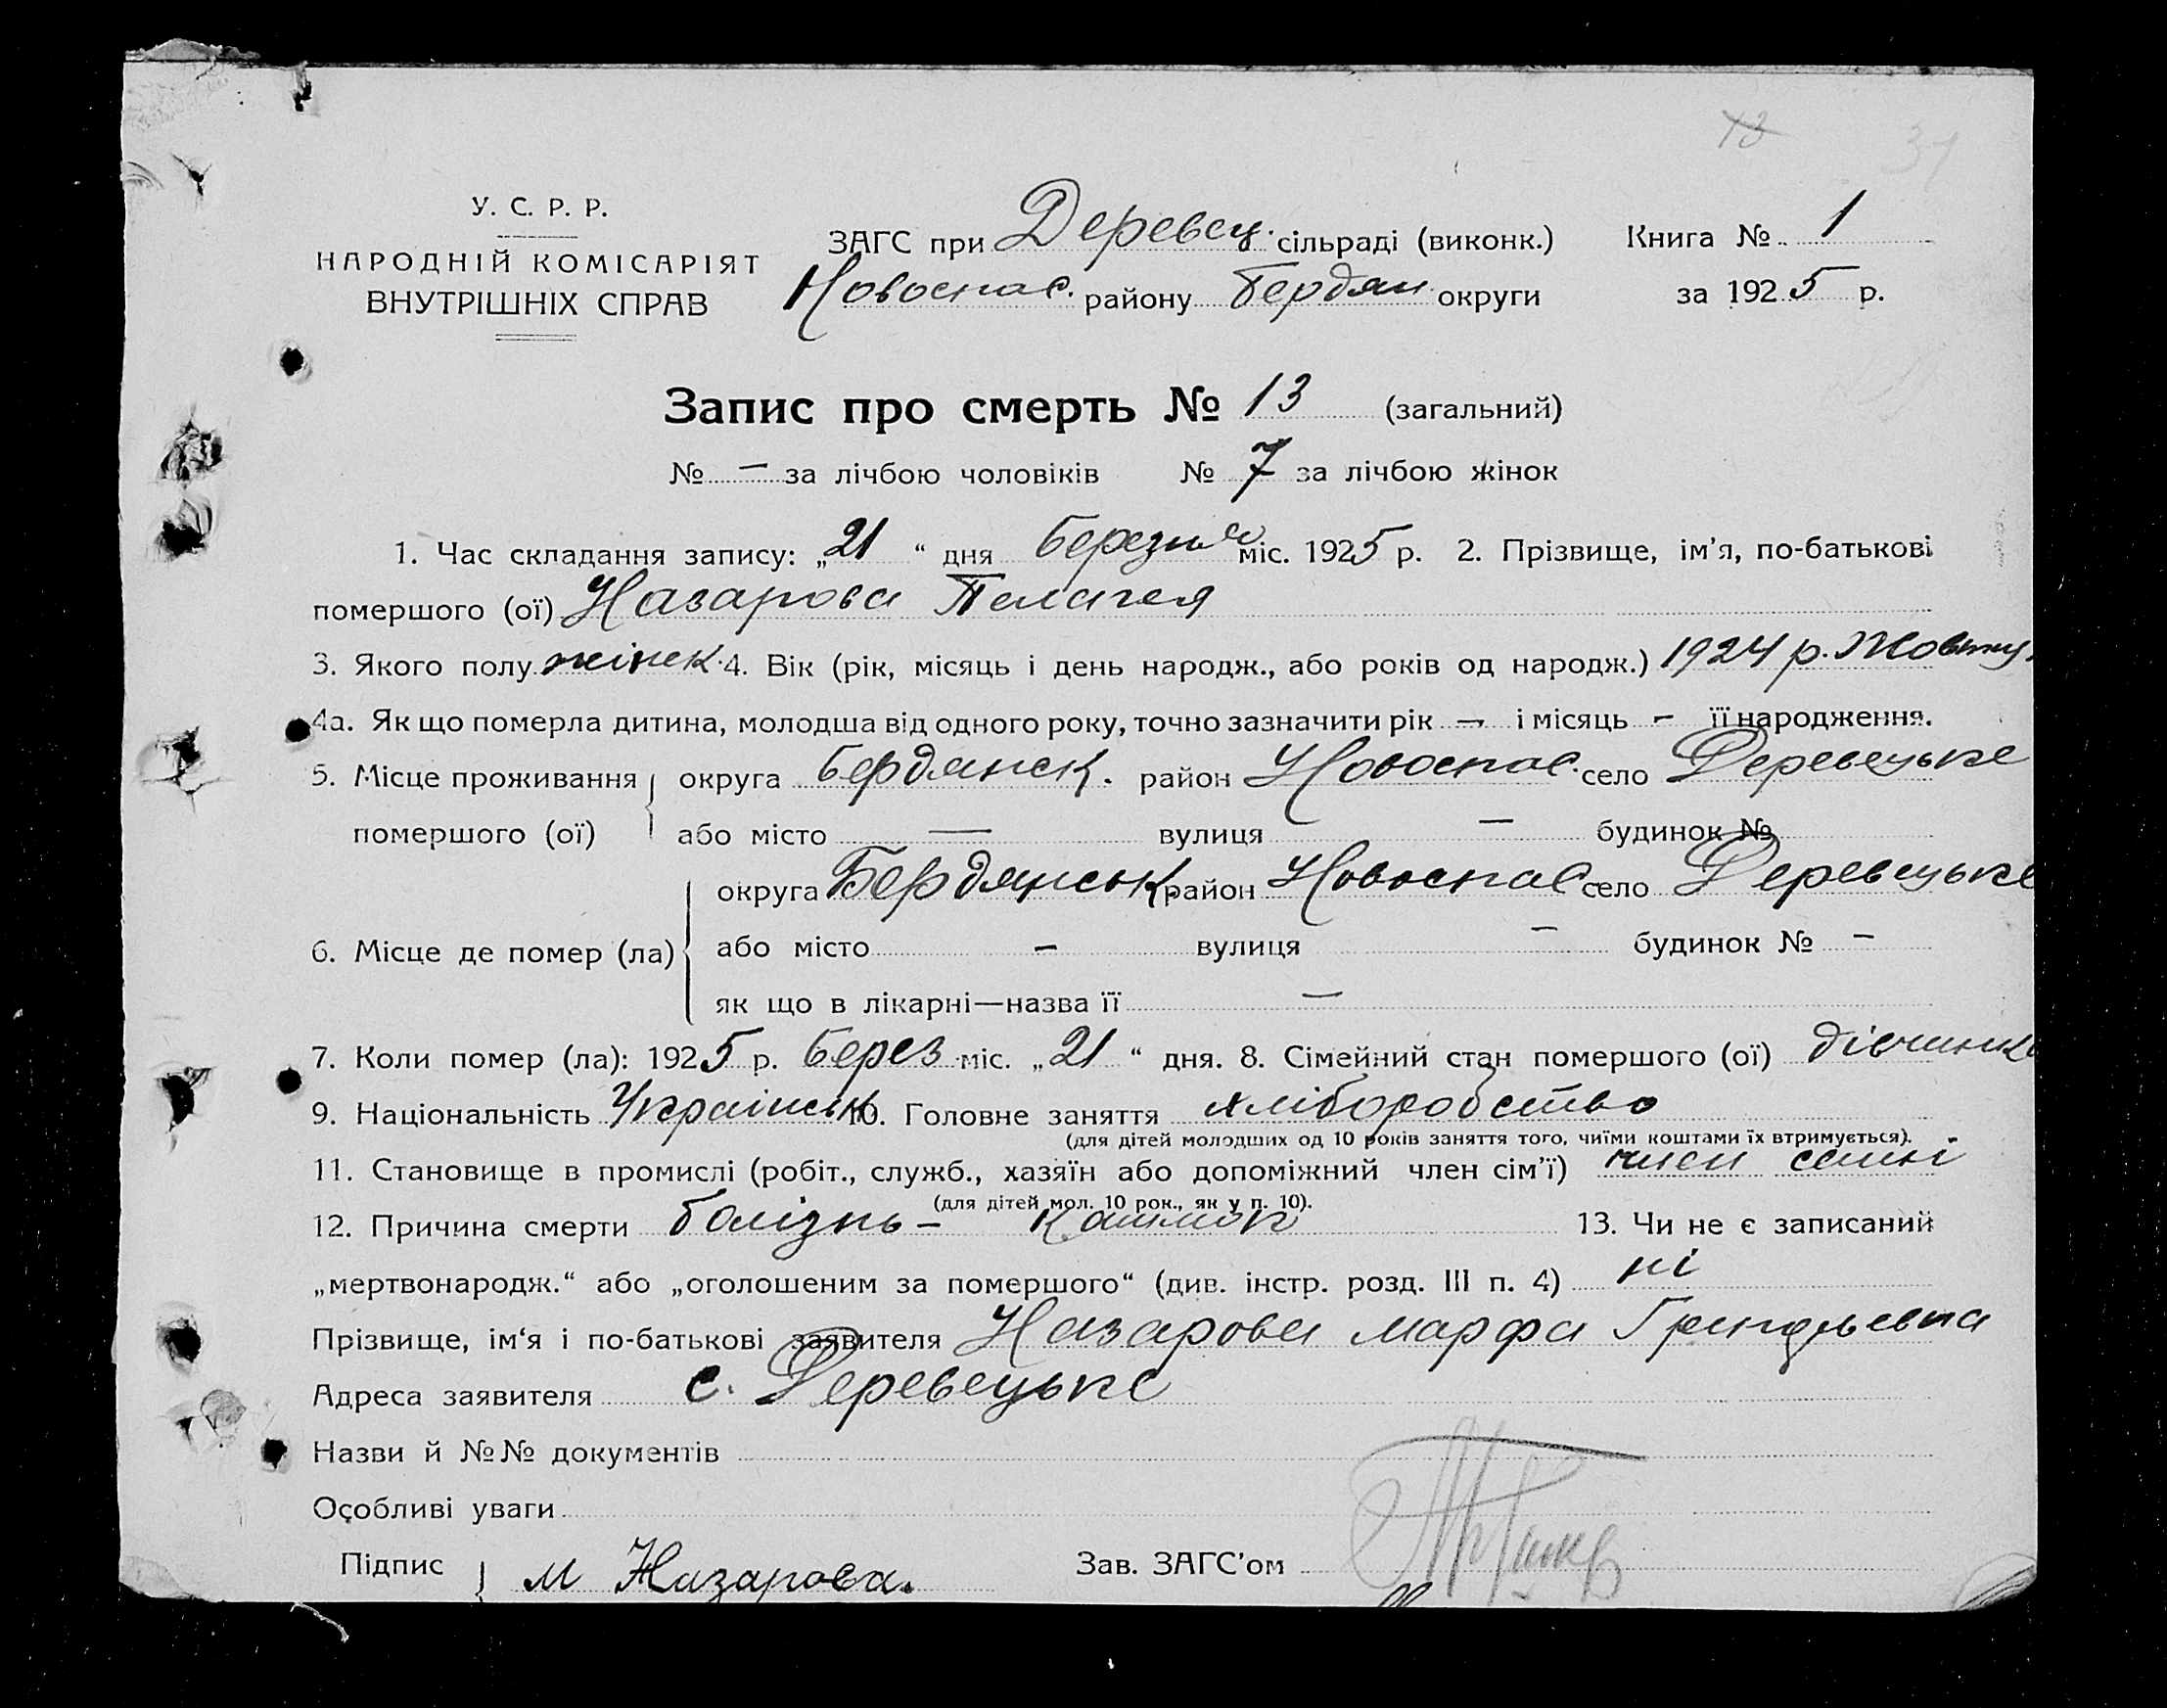 13 31
У. С. Р. Р.
НАРОДНІЙ КОМІСАРІЯТ
ВНУТРІШНІХ СПРАВ
ЗАГС при Деревец. сільраді (виконк.) Книга № 1
Новоспас. району Бердян. округи за 1925 р.
Запис про смерть № 13 (загальний)
№ — за лічбою чоловіків № 7 за лічбою жінок
1. Час складання запису: „21“ дня березня міс. 1925 р. 2. Прізвище, ім'я, по-батькові
помершого (ої) Назарова Пелагея
3. Якого полу жінск. 4. Вік (рік, місяць і день народж., або років од народж.) 1924 р. Жовтн.
4а. Як що померла дитина, молодша від одного року, точно зазначити рік — і місяць - її народження.
5. Місце проживання округа Бердянськ. район Новоспас. село Деревецьке
помершого (ої) або місто — вулиця — будинок №
округа Бердянськ. район Новоспас село Деревецьке
6. Місце де помер (ла) або місто - вулиця - будинок № -
як що в лікарні—назва її —
7. Коли помер (ла): 1925 р. Берез. міс. „21“ дня. 8. Сімейний стан помершого (ої) дівчинка
9. Національність Українськ 10. Головне заняття хліборобство
(для дітей молодших од 10 років заняття того, чиїми коштами їх втримується).
11. Становище в промислі (робіт., служб., хазяїн або допоміжний член сім'ї) член семні
(для дітей мол. 10 рок., як у п. 10).
12. Причина смерти болізнь — 13. Чи не є записаний
„мертвонародж.“ або „оголошеним за помершого“ (див. інстр. розд. III п. 4) ні
Прізвище, ім'я і по-батькові заявителя Назарова Марфа
Адреса заявителя с. Деревецьке
Назви й №№ документів
Особливі уваги
Підпис М Назарова. Зав. ЗАГС'ом